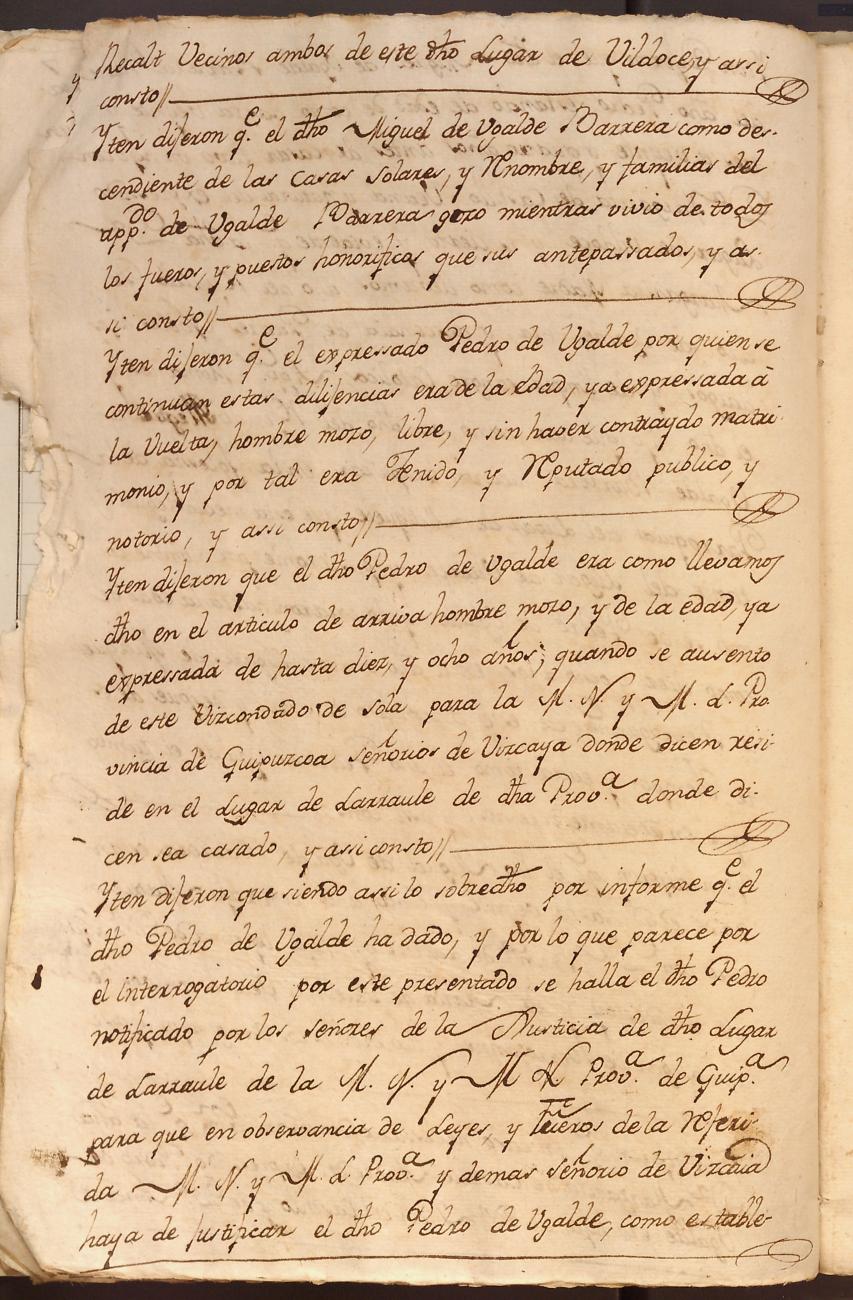 Recalt Vecinos ambos de este dho Lugar de Vildoce, y assi
consto//
Yten dijeron q.e el dho Miguel de Vgalde Barrera como des-
cendiente de las Casas solares, y Renombre, y familias del
app.do de Vgalde Barrera gozo mientras vivio de todos
los fueros, y puestos honorificos que sus antepassados, y as-
si consto//
Yten dijeron q.e el expressado Pedro de Vgalde por quien se
continuan estas dilijencias era de la edad, ya expressada â
la Vuelta, hombre mozo, libre, y sin haver contraydo matri-
monio, y por tal era Tenido, y Reputado publico, y
notorio, y assi consto//
Yten dijeron que el dho Pedro de Vgalde era como llevamos
dho en el articulo de arriva hombre mozo, y de la edad, ya
expressada de hasta diez, y ocho años; quando se ausento
de este Vizcondado de sola para la M. N. y M. L. Pro
vincia de Guipuzcoa señorios de Vizcaya donde dicen resi-
de en el Lugar de Larraule de dha Prov.a donde di-
cen sea casado, y assi consto//
Yten dijeron que siendo assi lo sobredho por informe q.e el
dho Pedro de Vgalde ha dado, y por lo que parece por
el Interrogatorio por este presentado se halla el dho Pedro
notificado por los señores de la Justicia de dho Lugar
de Larraule de la M. N. y M L Prov.a de Guip.a
para que en observancia de Leyes, y fueros de la Referi-
da M. N. y M. L. Prov.a y demas señorio de Vizcaia
haya de justificar el dho Pedro de Vgalde, como estable-